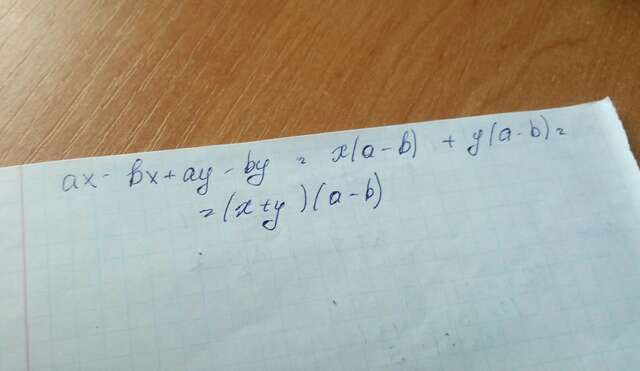 ax - bx + ay - by = x(a - b) + y(a - b) =
= (x + y)(a - b)